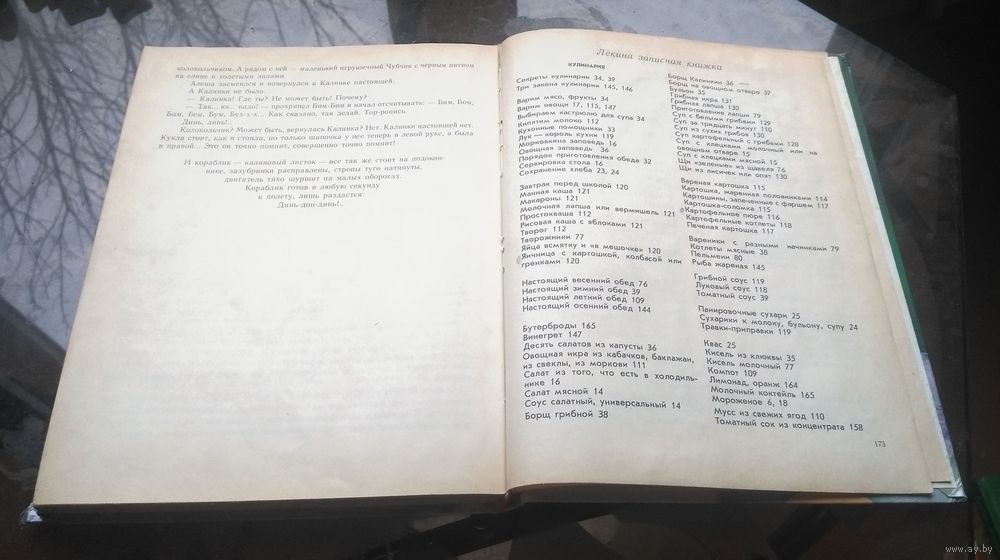 колокольчиком. А рядом с ней — маленький игрушечный Чубчик с черным пятном
на спине и толстыми лапами.
Алеша засмеялся и повернулся к Калинке настоящей.
А Калинки не было.
— Калинка! Где ты? Не может быть! Почему?
— Так... кх... надо! — прохрипел Бим-Бом и начал отсчитывать: — Бим, Бом,
Бам, Бем, Бум, Бух-х-х... Как сказано, так делай. Тор-ропись.
Динь, динь!..
Колокольчик? Может быть, вернулась Калинка? Нет. Калинки настоящей нет.
Кукла стоит, как и стояла, но только шапочка у нее теперь в левой руке, а была
в правой... Это он точно помнит, совершенно точно помнит!
И кораблик — калиновый листок — все так же стоит на подокон-
нике, зазубринки расправлены, стропы туго натянуты,
двигатель тихо шуршит на малых оборотах.
Кораблик готов в любую секунду
к полету, лишь раздастся:
Динь-дон-динь!..
Лёкина записная книжка
КУЛИНАРИЯ
Секреты кулинарии 34, 39
Три закона кулинарии 145, 146
Варим мясо, фрукты 34
Варим овощи 17, 115, 147
Выбираем кастрюлю для супа 34
Кипятим молоко 112
Кухонные помощники 33
Лук — король кухни 119
Морковкина заповедь 16
Овощная заповедь 36
Порядок приготовления обеда 32
Сервировка стола 16
Сохранение хлеба 23, 24
Завтрак перед школой 120
Манная каша 121
Макароны 121
Молочная лапша или вермишель 121
Простокваша 112
Рисовая каша с яблоками 121
Творог 112
Творожники 77
Яйца всмятку и «в мешочке» 120
Яичница с картошкой, колбасой или
гренками 120
Настоящий весенний обед 76
Настоящий зимний обед 39
Настоящий летний обед 109
Настоящий осенний обед 144
Бутерброды 165
Винегрет 147
Десять салатов из капусты 36
Овощная икра из кабачков, баклажан,
из свеклы, из моркови 111
Салат из того, что есть в холодиль-
нике 16
Салат мясной 14
Соус салатный, универсальный 14
Борщ грибной 38
Борщ Калинкин 36
Борщ на овощном отваре 37
Бульон 35
Грибная икра 131
Грибная лапша 130
Приготовление лапши 79
Суп с белыми грибами 129
Суп за тридцать минут 110
Суп из сухих грибов 130
Суп картофельный с грибами 128
Суп с клецками молочный или на
овощном отваре 15
Суп с клецками мясной 15
Щи «зеленые» из щавеля 76
Щи из лисичек или опят 130
Вареная картошка 115
Картошка, жаренная половинками 114
Картошины, запеченные с фаршем 117
Картошка-соломка 115
Картофельное пюре 116
Картофельные котлеты 118
Печеная картошка 117
Вареники с разными начинками 79
Котлеты мясные 38
Пельмени 80
Рыба жареная 145
Грибной соус 119
Луковый соус 118
Томатный соус 39
Панировочные сухари 25
Сухарики к молоку, бульону, супу 24
Травки-приправки 119
Квас 25
Кисель из клюквы 35
Кисель молочный 77
Компот 109
Лимонад, оранж 164
Молочный коктейль 165
Мороженое 6, 18
Мусс из свежих ягод 110
Томатный сок из концентрата 158
173
www.ay.by